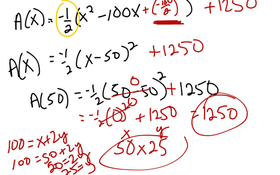 A(X) = -1/2 (x² - 100x + (-100/2)²) + 1250
A(X) = -1/2 (x - 50)² + 1250
A(50) = -1/2 (50 - 50)² + 1250
= -1/2 (0)² + 1250 = 1250
100 = x + 2y
100 = 50 + 2y
50 = 2y
25 = y
x y
50 x 25